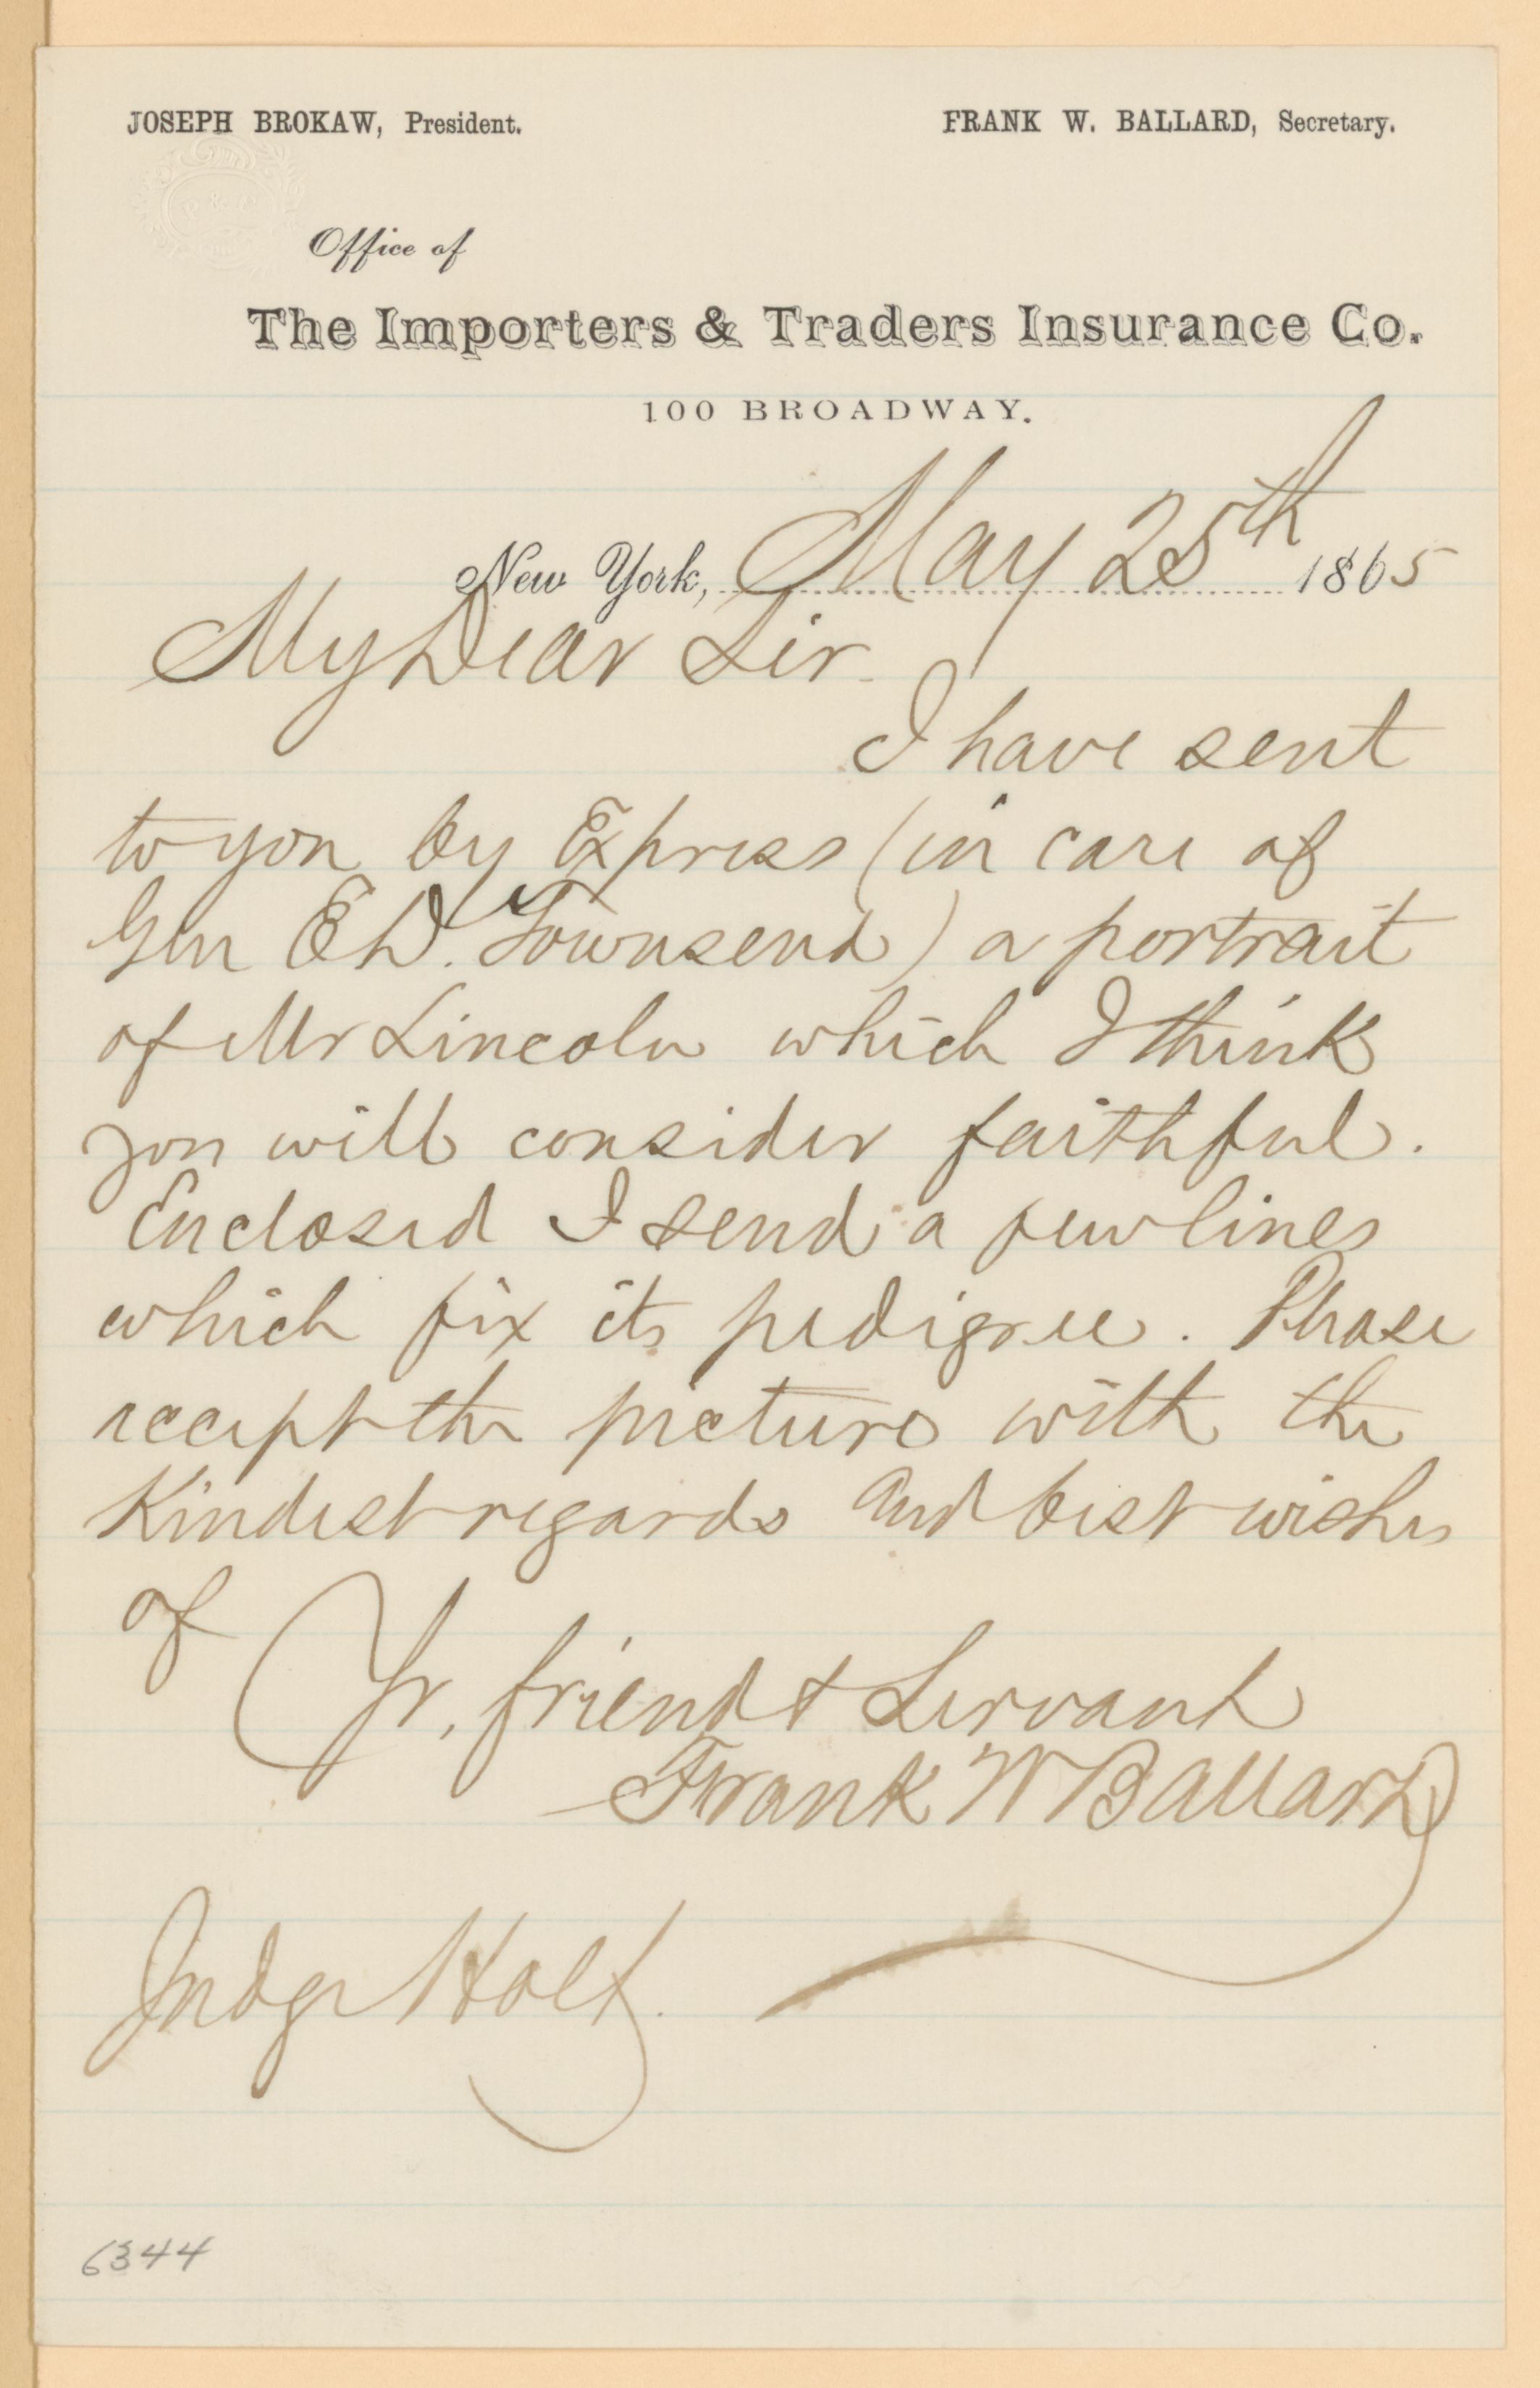 JOSEPH BROKAW, President. FRANK W. BALLARD, Secretary.
Office of
The Importers & Traders Insurance Co.
100 BROADWAY.
New York, May 25th 1865
My Dear Sir.
I have sent
to you by Express (in care of
Gen E D. Townsend) a portrait
of Mr Lincoln which I think
you will consider faithful.
Enclosed I send a few lines
which fix its pedigree. Please
accept the picture with the
Kindest regards and best wishes
of
Yr. friend & Servant
Frank W Ballard
Judge Holt.
6344